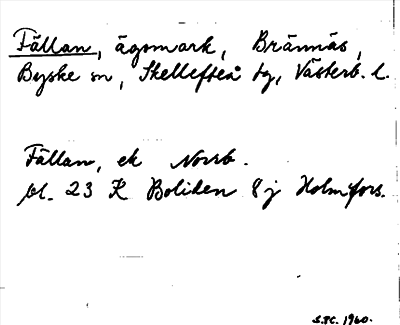 Fällan, ägomark, Brännäs,
Byske sn, Skellefteå tg, Västerb. l.
Fällan, ek Norrb.
bl. 23 K Boliden 8j Holmfors.
S.I.C. 1960.